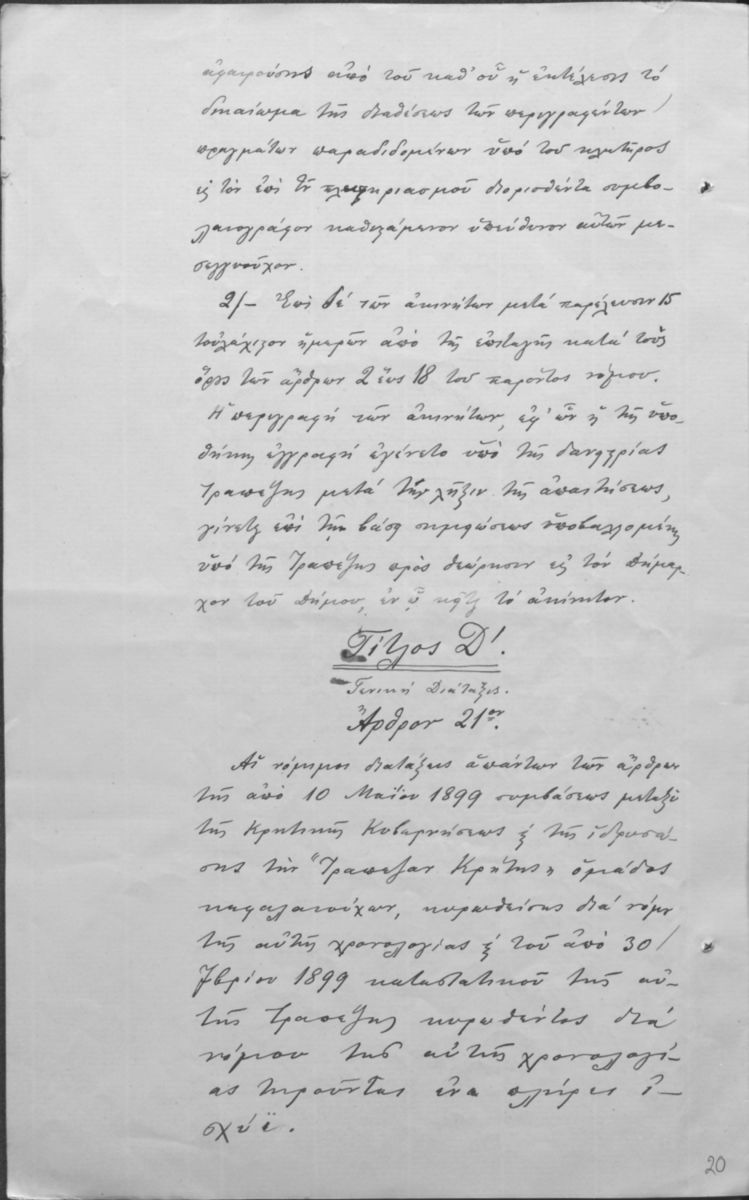 ἀφαιρούσης ἀπό τοῦ καθ' οὗ ἡ ἐκτέλεσις τό
δικαίωμα τῆς διαθέσεως τῶν περιγραφέντων
πραγμάτων παραδιδομένων ὑπό τοῦ κλητῆρος
εἰς τόν ἐπί τοῦ πλειστηριασμοῦ διορισθέντα συμβο-
λαιογράφον καθιστάμενον ὑπεύθυνον αὐτῶν με-
σεγγυοῦχον.
2/- Ἐπί δέ τῶν ἀκινήτων μετά παρέλευσιν 15
τοὐλάχιστον ἡμερῶν ἀπό τῆς ἐπιταγῆς κατά τούς
ὅρους τῶν ἄρθρων 2 ἕως 18 τοῦ παρόντος νόμου.
Ἡ περιγραφή τῶν ἀκινήτων, ἐφ' ὧν ἡ τῆς ὑπο-
θήκης ἐγγραφή ἐγένετο ὑπό τῆς δανειστρίας
Τραπέζης μετά τήν λῆξιν τῆς ἀπαιτήσεως,
γίνεται ἐπί τῇ βάσει σημειώσεως ὑποβαλλομένης
ὑπό τῆς Τραπέζης πρός θεώρησιν εἰς τόν Δήμαρ-
χον τοῦ Δήμου, ἐν ᾧ κεῖται τό ἀκίνητον.
Τίτλος Δ'.
Γενική Διάταξις.
Ἄρθρον 21ον.
Αἱ νόμιμοι διατάξεις ἁπάντων τῶν ἄρθρων
τῆς ἀπό 10 Μαΐου 1899 συμβάσεως μεταξύ
τῆς Κρητικῆς Κυβερνήσεως & τῆς ἱδρυσά-
σης τήν "Τράπεζαν Κρήτης" ὁμάδος
κεφαλαιούχων, κυρωθείσης διά νόμου
τῆς αὐτῆς χρονολογίας & τοῦ ἀπό 30
7βρίου 1899 καταστατικοῦ τῆς αὐ-
τῆς Τραπέζης κυρωθέντος διά
νόμου τῆς αὐτῆς χρονολογί-
ας τηροῦνται ἐν πλήρει ἰ-
σχύϊ.
20